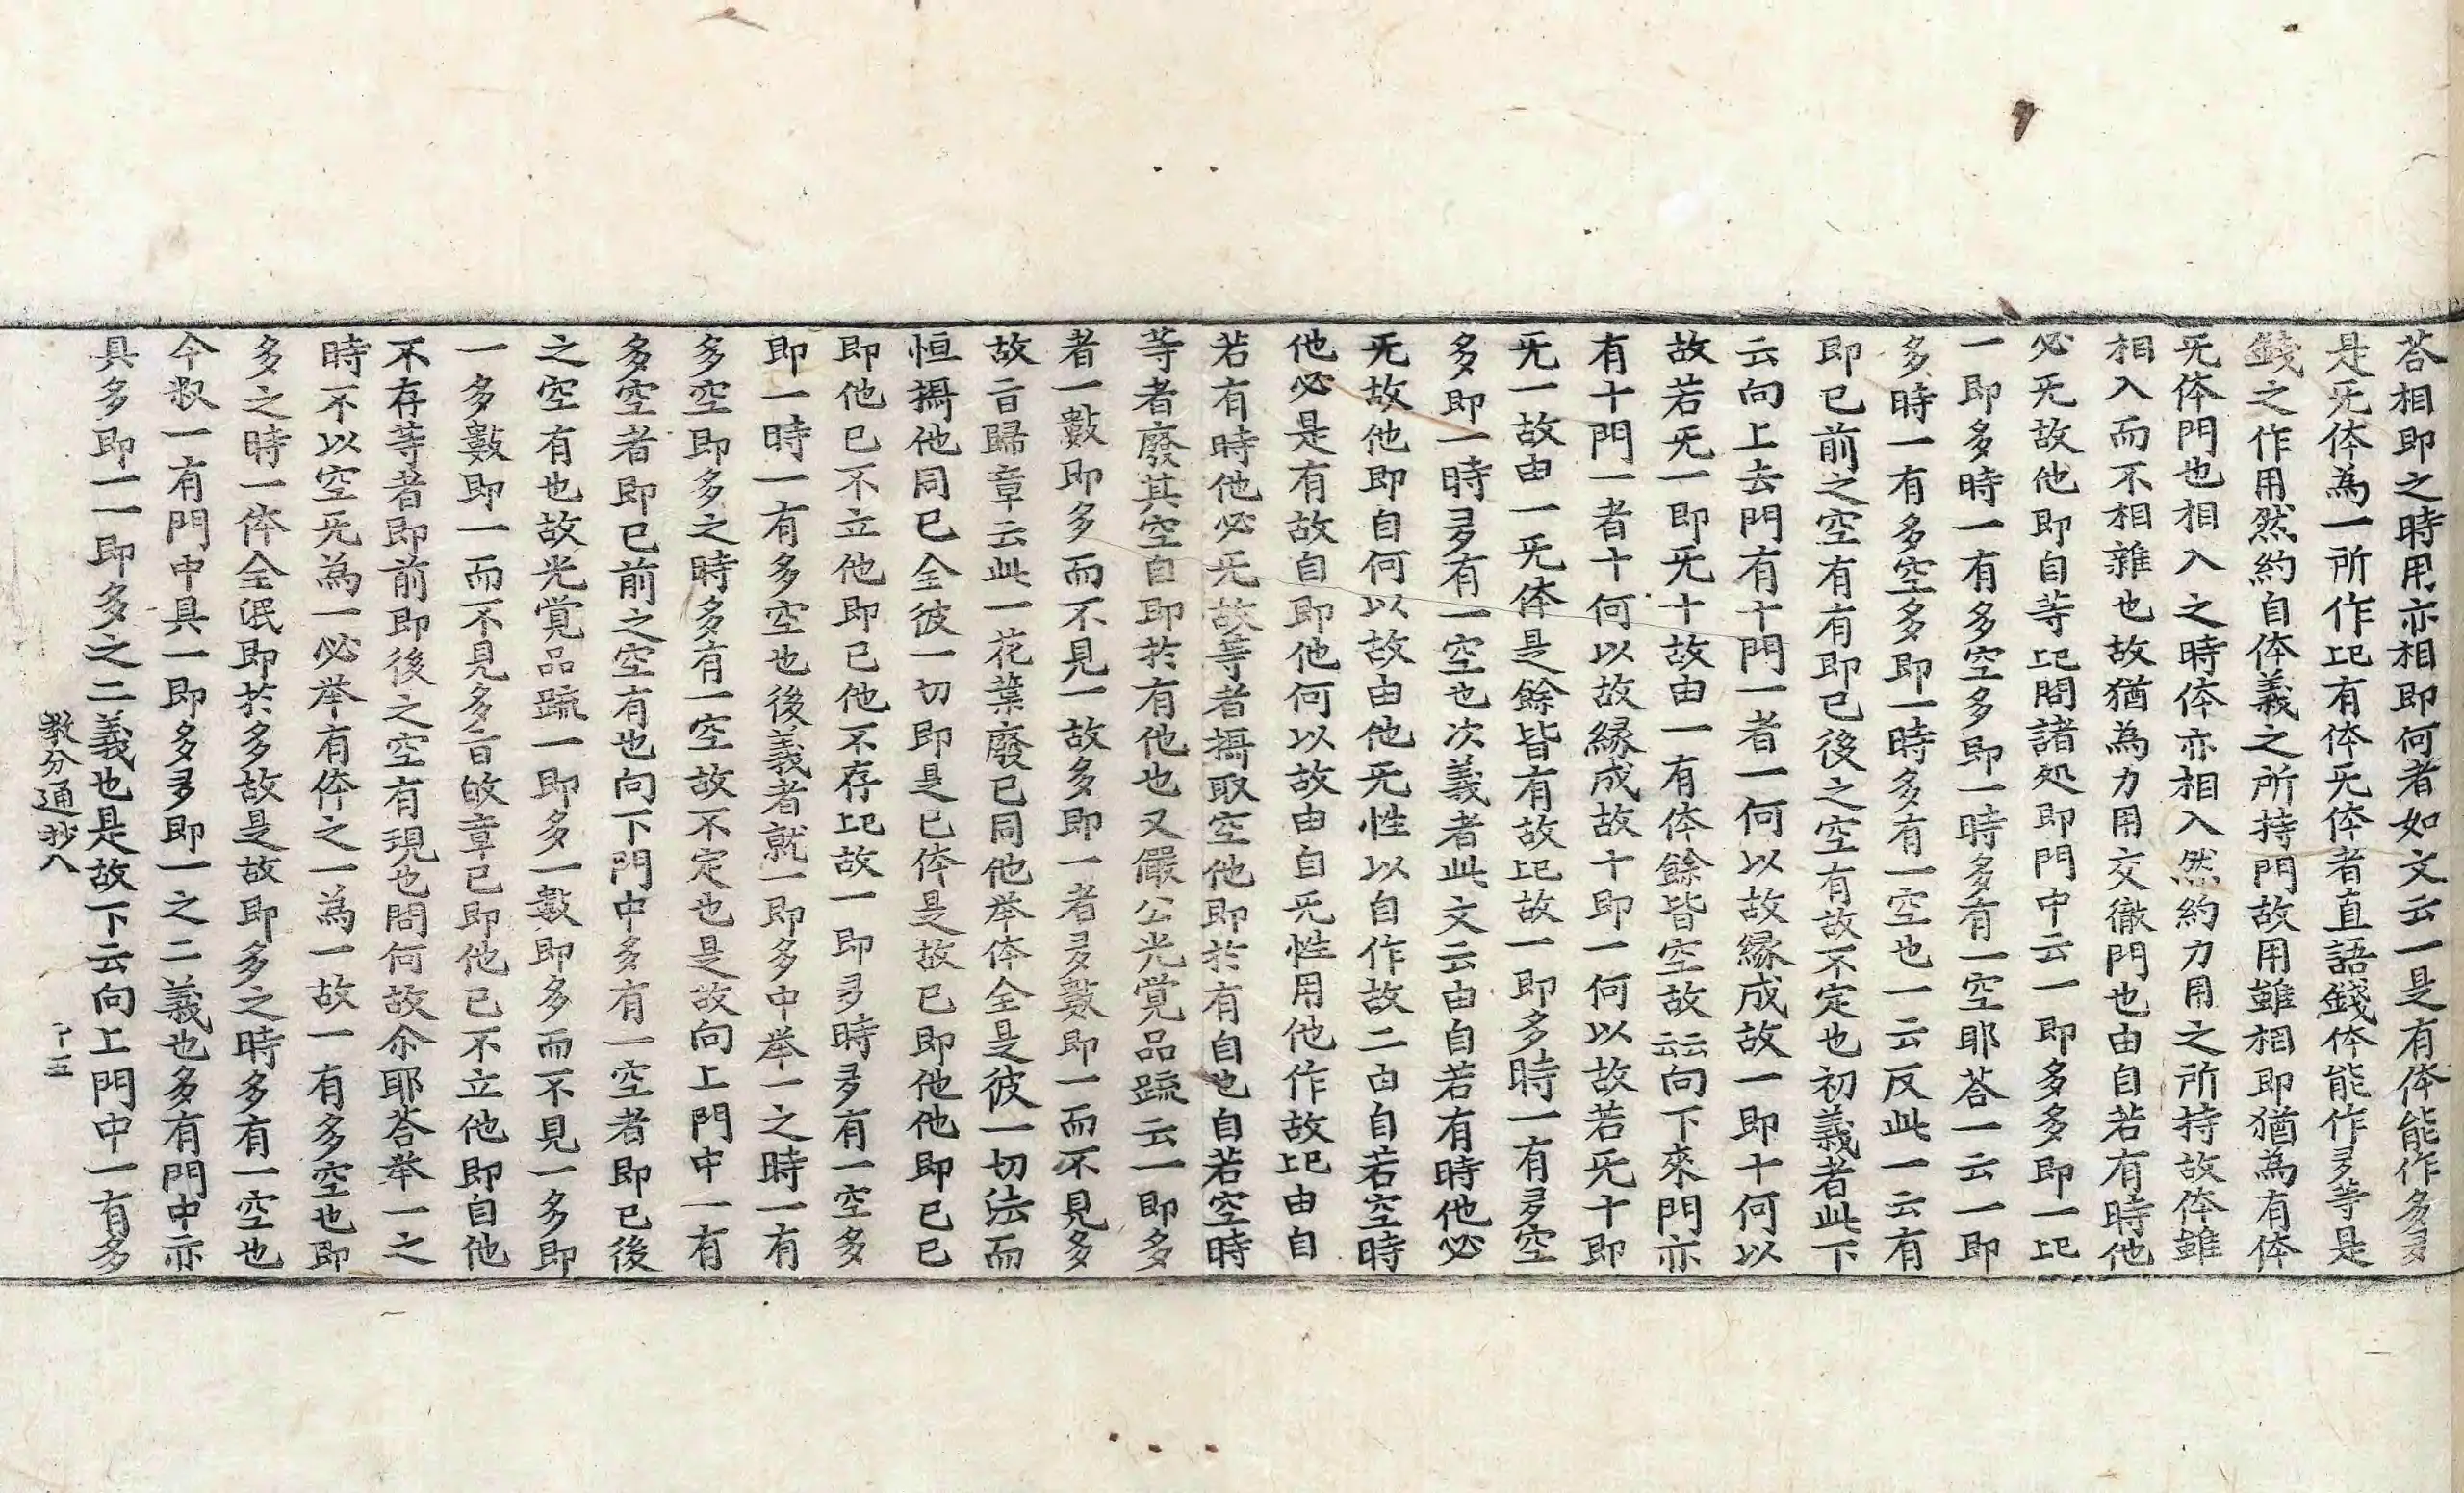 答相即之時用亦相即何者如文云一是有体能作多多
是旡体為一所作㠯有体旡体者直語錢体能作多等是
錢之作用然約自体義之所持門故用雖相即猶為有体
旡体門也相入之時体亦相入然約力用之所持故体雖
相入而不相雜也故猶為力用交徹門也由自若有時他
必旡故他即自等㠯問諸処即門中云一即多多即一㠯
一即多時一有多空多即一時多有一空耶荅一云一即
多時一有多空多即一時多有一空也一云反此一云有
即已前之空有有即已後之空有故不定也初義者此下
云向上去門有十門一者一何以故緣成故一即十何以
故若旡一即旡十故由一有体餘皆空故云云向下來門亦
有十門一者十何以故緣成故十即一何以故若旡十即
旡一故由一旡体是餘皆有故㠯故一即多時一有多空
多即一時多有一空也次義者此文云由自若有時他必
旡故他即自何以故由他旡性以自作故二由自若空時
他必是有故自即他何以故由自旡性用他作故㠯由自
若有時他必旡故等者攝取空他即於有自也自若空時
等者廢其空自即於有他也又儼公光覺品䟽云一即多
者一數即多而不見一故多即一者多數即一而不見多
故㫖歸章云此一花葉廢已同他举体全是彼一切法而
恒攝他同已全彼一切即是已体是故已即他他即已已
即他已不立他即已他不存㠯故一即多時多有一空多
即一時一有多空也後義者就一即多中举一之時一有
多空即多之時多有一空故不定也是故向上門中一有
多空者即已前之空有也向下門中多有一空者即已後
之空有也故光覺品䟽一即多一數即多而不見一多即
一多數即一而不見多㫖故章已即他已不立他即自他
不存等者即前即後之空有現也問何故尒耶荅举一之
時不以空旡為一必举有体之一為一故一有多空也即
多之時一体全泯即於多故是故即多之時多有一空也
今釈一有門中具一即多多即一之二義也多有門中亦
具多即一一即多之二義也是故下云向上門中一有多
教分通抄八